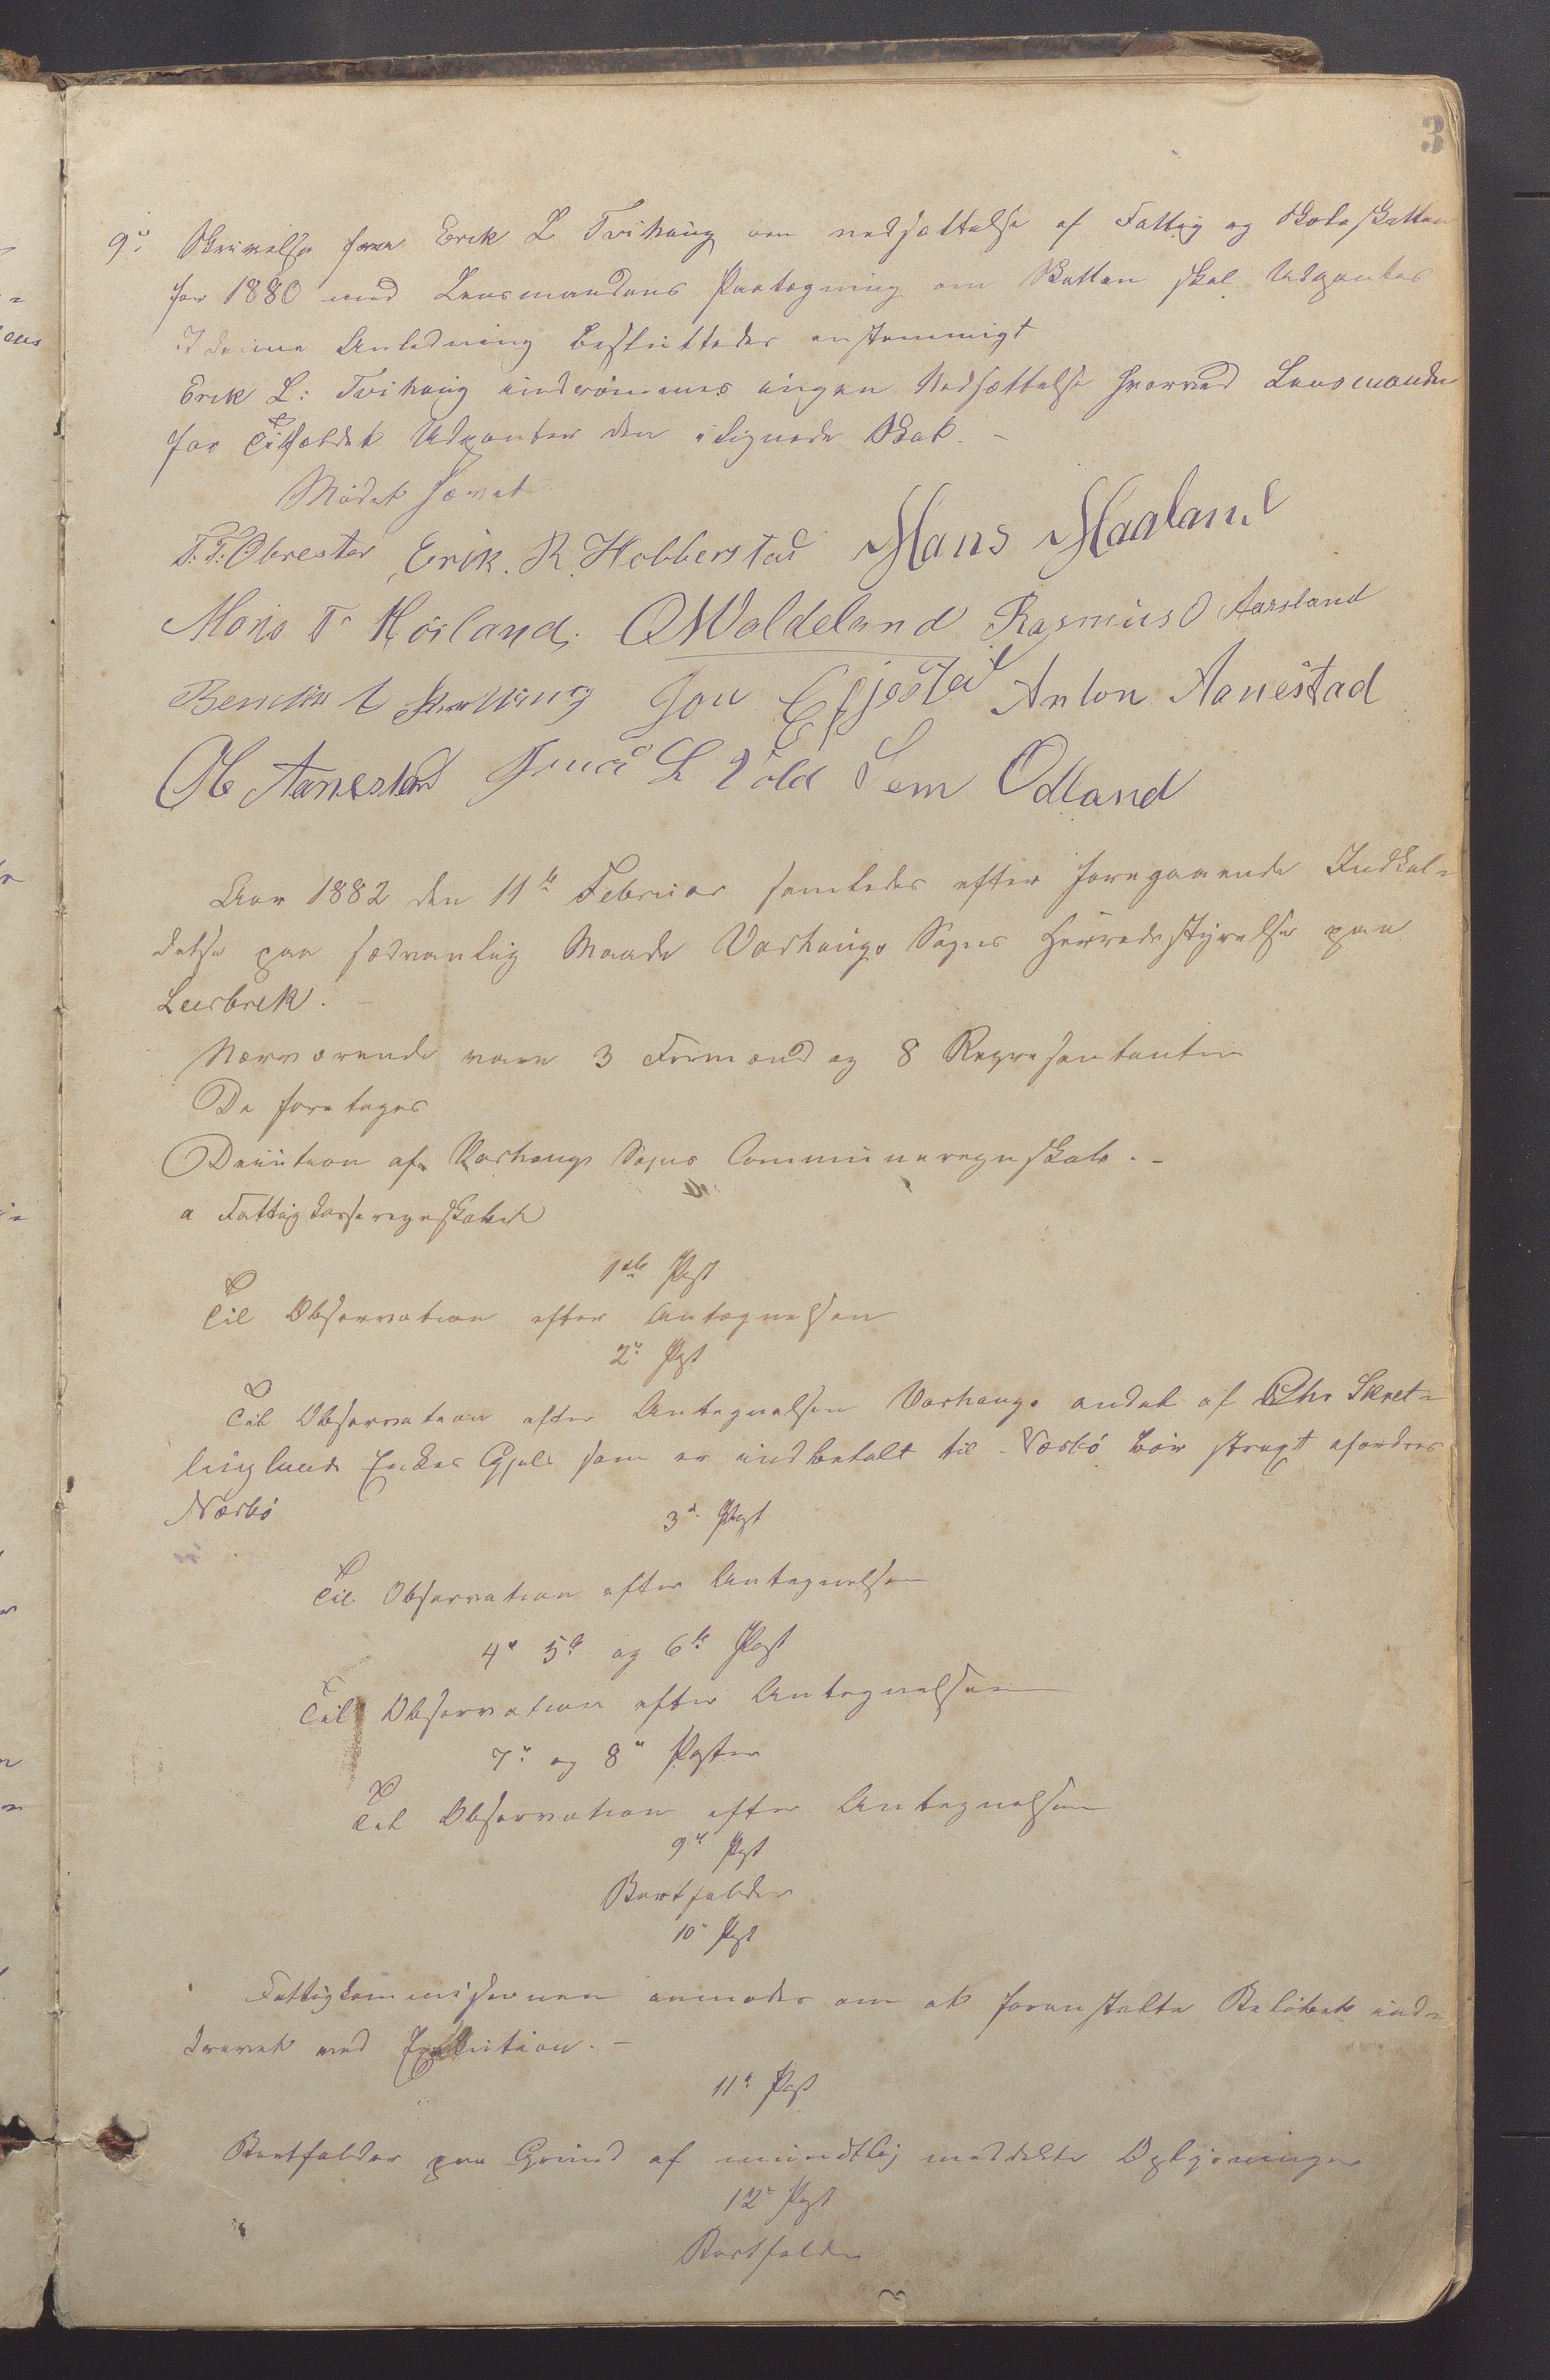 3
9de Skrivelse fra Erik L Tvihaug om nedsættelse af Fattig og Skoleskatten
for 1880 med Lensmandens Paategning om Skatten skal Udpantes
I denne Anledning besluttedes enstemmigt
Erik L: Tvihaug indrømmes ingen Nedsættelse hvorved Lensmanden
for Tilfældet Udpanter den ilignede Skat. -
Mødet hævet
T. T. Obrestad Erik. R. Hobberstad Hans Haaland
Mons T Høiland; O Woldeland Rasmus O Aarsland
Jon Efjestad Anton Aanestad
Ole Aanestad L Vold Sem Odland
Aar 1882 den 11te Februar samledes efter foregaaende Indkal-
delse paa sedvanlig Maade Varhaugs Sogns Herredsstyrelse paa
Lerbrek. -
Nærværende vare 3 Formænd og 8 Repræsentanter
Da foretages
Decition af Varhaugs Sogns Communeregnskab. -
a Fattigkasseregnskabet
1ste Post
Til Observation efter Antegnelsen
2den Post
Til Observation efter Antegnelsen Varhaugs andel af Chr Skret-
linglands Enkes Gjæld som er indbetalt til Nærbø bør straxt afordres
Nærbø
3die Post
Til Observation efter Antegnelsen
4de 5te og 6te Post
Til Observation efter Antegnelsen
7de og 8de Poster
Til Observation efter Antegnelsen
9de Post
Bortfalder
10de Post
Fattigkommisionen anmodes om at foranstalte Beløbet ind-
drevet ved Execution. -
11te Post
Bortfalder paa Grund af mundtlig meddelte Oplysninger
12te Post
Bortfalder